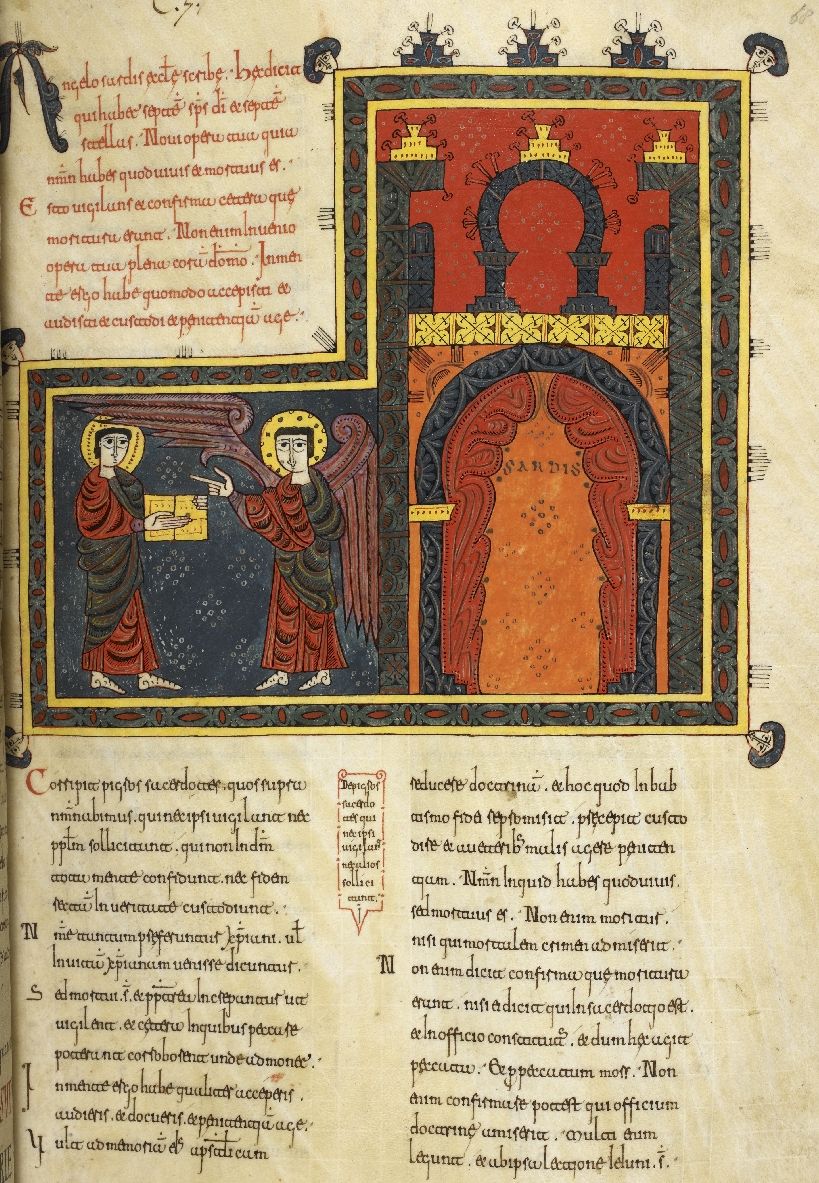 C. 7.
68
Angelo sardis eclę scribe. Hęc dicit
qui habet septē sps di et septē
stellas. Noui opera tua quia
nmn habes quod uiuis et mortuus es.
Esto uigilans et confirma cetera quę
moritura erunt. Non enim Inuenio
opera tua plena corā domo. In men
te ergo habe quomodo accepisti et
audisti et custodi et pęnitentiā age.
SARDIS
Corripit pigros sacerdotes. quos supra
nmnabimus. qui nec ipsi uigilant nec
pplm sollicitant. qui non In dm
tota mente confidunt. nec fidem
rectā In ueritate custodiunt.
Nme tantum preferuntur xpiani. ul
In uitā xpianam uenisse dicuntur.
Sed mortui .s. et pptrea Increpantur ut
uigilent. et cetera In quibus peccare
poterant corroborent unde admonet.
In mente ergo habe qualiter acceperis.
audieris. et docueris. et pęnitentiā age.
Vult ad memoriā apstlicam
De pigros
sacerdo
tes qui
nec ipsi
uigilant
nec alios
sollici
tant.
seducere doctrinā. et hoc quod In bab
tismo fidei se promisit. precepit custo
dire et a ueterib malis agere peniten
tiam. Nmn Inquid habes quod uiuis.
sed mortuus es. Non enim moritur.
nisi qui mortalem crimen admiserit.
Non enim dicit confirma quę moritura
erunt. nisi ei dicit qui In sacerdotio est.
et In officio constitutus. et dum hęc agit
peccatu. Et p peccatum mors. Non
enim confirmare potest qui officium
doctrinę amiserit. Multi enim
legunt. et ab ipsa lectione Ieiuni .s.